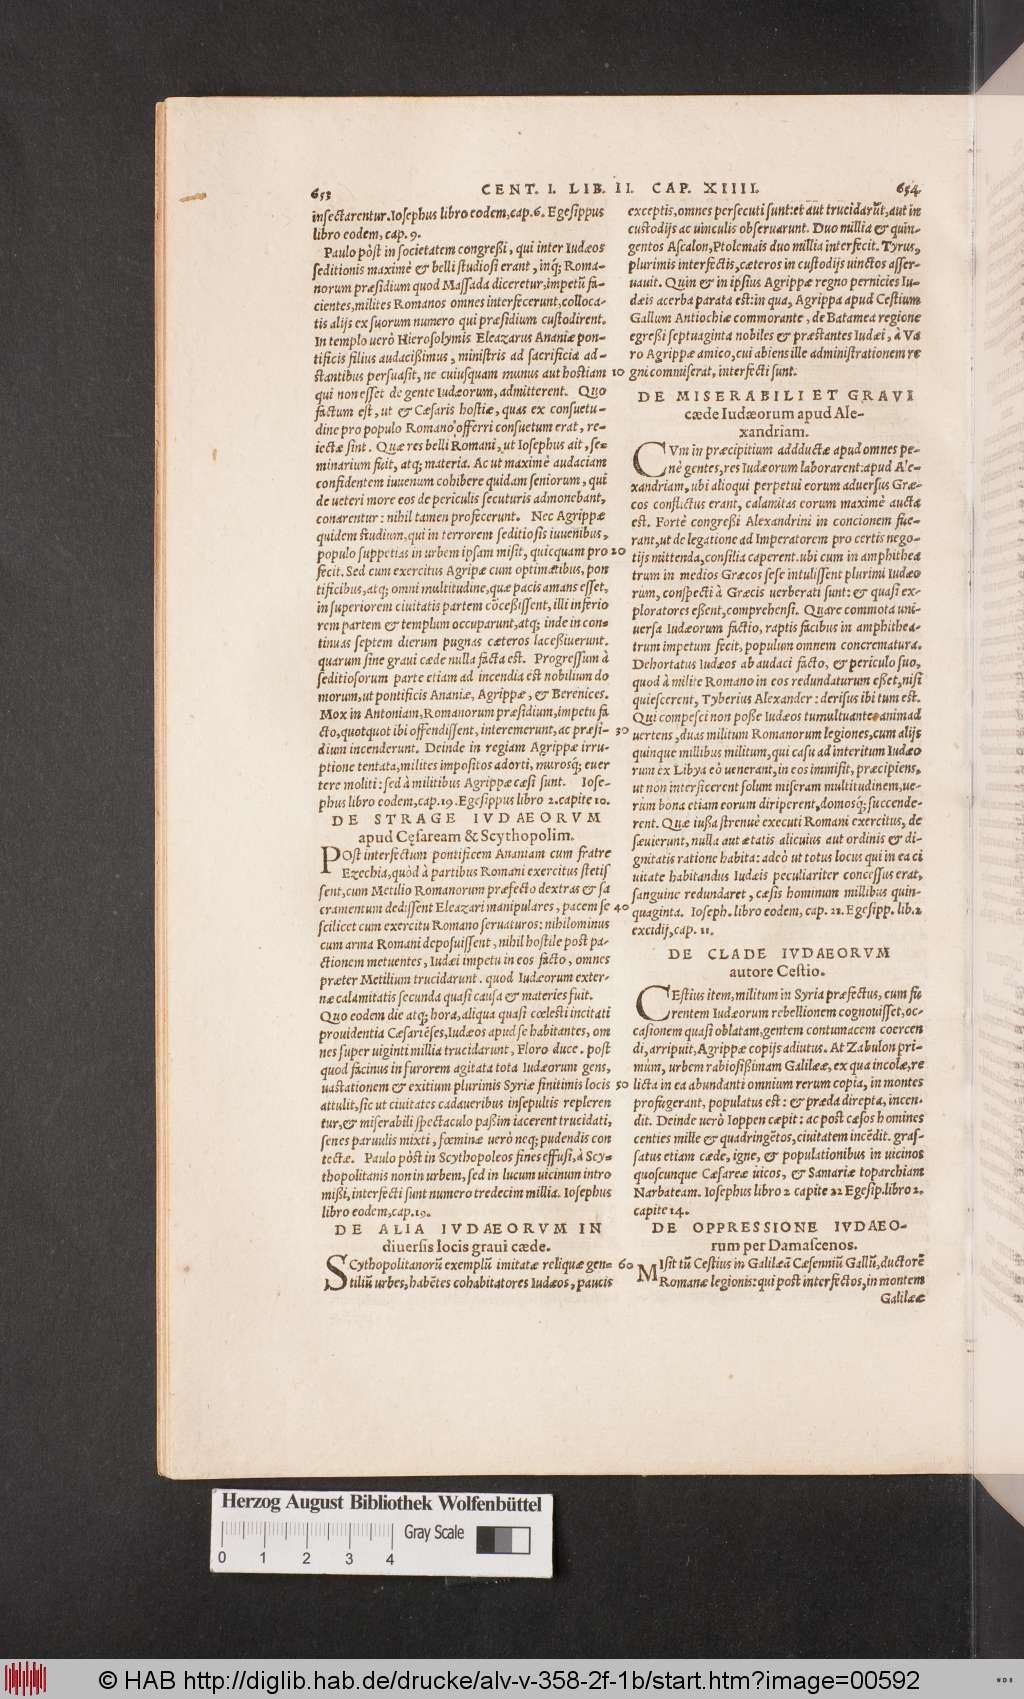 653
CENT. I. LIB. II. CAP. XIIII.
654
insectarentur. Iosephus libro eodem, cap. 6. Egesippus
libro eodem, cap. 9.
Paulo pòst in societatem congreßi, qui inter Iudæos
seditionis maximè & belli studiosi erant, inq; Roma-
norum præsidium quod Massada diceretur, impetũ fa-
cientes, milites Romanos omnes interfecerunt, colloca-
tis alijs ex suorum numero qui præsidium custodirent.
In templo uerò Hierosolymis Eleazarus Ananiæ pon-
tificis filius audacißimus, ministris ad sacrificia ad-
stantibus persuasit, ne cuiusquam munus aut hostiam
qui non esset de gente Iudæorum, admitterent. Quo
factum est, ut & Cæsaris hostiæ, quas ex consuetu-
dine pro populo Romano offerri consuetum erat, re-
iectæ sint. Quæ res belli Romani, ut Iosephus ait, se-
minarium fuit, atq; materia. Ac ut maximè audaciam
confidentem iuuenum cohibere quidam seniorum, qui
de ueteri more eos de periculis securis admonebant,
conarentur: nihil tamen profecerunt. Nec Agrippæ
quidem studium, qui in terrorem seditiosis iuuenibus,
populo suppetias in urbem ipsam misit, quicquam pro
fecit. Sed cum exercitus Agripæ cum optimatibus, pon
tificibus, atq; omni multitudine, quæ pacis amans esset,
in superiorem ciuitatis partem cõceßissent, illi inferio
rem partem & templum occuparunt, atq; inde in con-
tinuas septem dierum pugnas cæteros laceßiuerunt.
quarum sine graui cæde nulla facta est. Progressum à
seditiosorum parte etiam ad incendia est nobilium do
morum, ut pontificis Ananiæ, Agrippæ, & Berenices.
Mox in Antoniam, Romanorum præsidium, impetu fa
cto, quotquot ibi offendissent, interemerunt, ac præsi-
dium incenderunt. Deinde in regiam Agrippæ irru-
ptione tentata, milites impositos adorti, murosq; euer
tere moliti: sed à militibus Agrippæ cæsi sunt. Iose-
phus libro eodem, cap. 19. Egesippus libro 2. capite 10.
DE STRAGE IVDAEORVM
apud Cęsaream & Scythopolim.
POst interfectum pontificem Ananiam cum fratre
Ezechia, quòd à partibus Romani exercitus stetis
sent, cum Metilio Romanorum præfecto dextras & sa
cramentum dedissent Eleazari manipulares, pacem se
scilicet cum exercitu Romano seruaturos: nihilominus
cum arma Romani deposuissent, nihil hostile post pa-
ctionem metuentes, Iudæi impetu in eos facto, omnes
præter Metilium trucidarunt. quod Iudæorum exter-
næ calamitatis secunda quasi causa & materies fuit.
Quo eodem die atq; hora, aliqua quasi cœlesti incitati
prouidentia Cæsariẽses, Iudæos apud se habitantes, om
nes super uiginti millia trucidarunt, Floro duce. post
quod facinus in furorem agitata tota Iudæorum gens,
uastationem & exitium plurimis Syriæ finitimis locis
attulit, sic ut ciuitates cadaueribus insepultis repleren
tur, & miserabili spectaculo paßim iacerent trucidati,
senes paruulis mixti, fœminæ uerò neq; pudendis con
tectæ. Paulo pòst in Scythopoleos fines effusi, à Scy-
thopolitanis non in urbem, sed in lucum uicinum intro
mißi, interfecti sunt numero tredecim millia. Iosephus
libro eodem, cap. 19.
DE ALIA IVDAEORVM IN
diuersis locis graui cæde.
SCythopolitanorũ exemplũ imitatæ reliquæ gen-
tiliũ urbes, habẽtes cohabitatores Iudæos, paucis
10
20
30
40
50
60
exceptis, omnes persecuti sunt: et aut trucidarũt, aut in
custodijs ac uinculis obseruarunt. Duo millia & quin-
gentos Ascalon, Ptolemais duo millia interfecit. Tyrus,
plurimis interfectis, cæteros in custodijs uinctos asser-
uauit. Quin & in ipsius Agrippæ regno pernicies Iu-
dæis acerba parata est: in qua, Agrippa apud Cestium
Gallum Antiochiæ commorante, de Batamea regione
egreßi septuaginta nobiles & præstantes Iudæi, à Va
ro Agrippæ amico, cui abiens ille administrationem re
gni commiserat, interfecti sunt.
DE MISERABILI ET GRAVI
cæde Iudæorum apud Ale-
xandriam.
CVm in præcipitium addductæ apud omnes pe-
nè gentes, res Iudæorum laborarent: apud Ale-
xandriam, ubi alioqui perpetui eorum aduersus Græ-
cos conflictus erant, calamitas eorum maximè aucta
est. Fortè congreßi Alexandrini in concionem fue-
rant, ut de legatione ad Imperatorem pro certis nego-
tijs mittenda, consilia caperent. ubi cum in amphithea
trum in medios Græcos sese intulissent plurimi Iudæo
rum, conspecti à Græcis uerberati sunt: & quasi ex-
ploratores eßent, comprehensi. Quare commota uni-
uersa Iudæorum factio, raptis facibus in amphithea-
trum impetum fecit, populum omnem concrematura.
Dehortatus Iudæos ab audaci facto, & periculo suo,
quod à milite Romano in eos redundaturum eßet, nisi
quiescerent, Tyberius Alexander: derisus ibi tum est.
Qui compesci non poße Iudæos tumultuantes animad
uertens, duas militum Romanorum legiones, cum alijs
quinque millibus militum, qui casu ad interitum Iudæo
rum ex Libya eò uenerant, in eos immisit, præcipiens,
ut non interficerent solum miseram multitudinem, ue-
rùm bona etiam eorum diriperent, domosq; succende-
rent. Quæ iußa strenuè executi Romani exercitus, de
sæuierunt, nulla aut ætatis alicuius aut ordinis & di-
gnitatis ratione habita: adeò ut totus locus qui in ea ci
uitate habitandus Iudæis peculiariter concessus erat,
sanguine redundaret, cæsis hominum millibus quin-
quaginta. Ioseph. libro eodem, cap. 22. Egesipp. lib. 2
excidij, cap. 11.
DE CLADE IVDAEORVM
autore Cestio.
CEstius item, militum in Syria præfectus, cum fu
rentem Iudæorum rebellionem cognouisset, oc-
casionem quasi oblatam, gentem contumacem coercen
di, arripuit, Agrippæ copijs adiutus. At Zabulon pri-
mùm, urbem rabiosißimam Galilææ, ex qua incolæ, re
licta in ea abundanti omnium rerum copia, in montes
profugerant, populatus est: & præda direpta, incen-
dit. Deinde uerò Ioppen cæpit: ac post cæsos homines
centies mille & quadringẽtos, ciuitatem incẽdit. gras-
satus etiam cæde, igne, & populationibus in uicinos
quoscunque Cæsareæ uicos, & Samariæ toparchiam
Narbateam. Iosephus libro 2 capite 22 Egesip. libro 2.
capite 14.
DE OPPRESSIONE IVDAEO-
rum per Damascenos.
MIsit tũ Cestius in Galilæã Cæsenniũ Gallũ, ductorẽ
Romanæ legionis: qui post interfectos, in montem
Galilææ
Herzog August Bibliothek Wolfenbüttel
Gray Scale
0 1 2 3 4
© HAB http://diglib.hab.de/drucke/alv-v-358-2f-1b/start.htm?image=00592